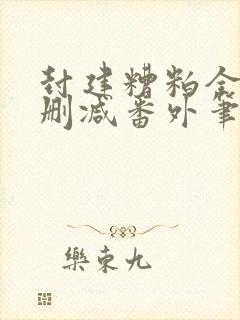 封建糟粕全
删减番外笔
樂東九